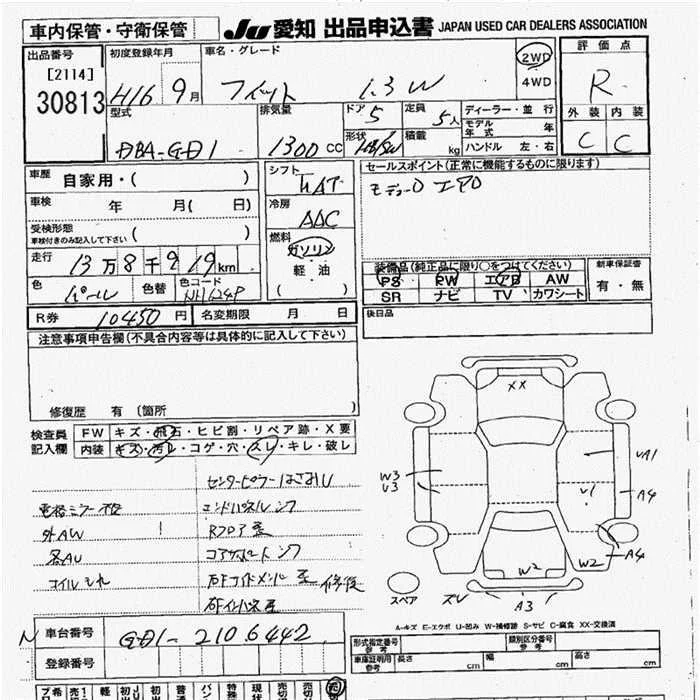 車内保管・守衛保管 JU 愛知 出品申込書 JAPAN USED CAR DEALERS ASSOCIATION
出品番号 初度登録年月 車名・グレード 2WD 4WD 評価点
[2114] 30813 H16 9月 フィット 1.3W R
型式 排気量 ドア 5 定員 5人 ディーラー・並行 外装 内装
DBA-GD1 1300CC 形状 積載 kg モデル年式 年 C C
ハンドル 左・右
車歴 自家用・( ) シフト セールスポイント(正常に機能するものに限ります)
車検 年 月( 日) 冷房 AAC モデューロ エアロ
受検形態 車検付きのみ記入して下さい ( ) 燃料 ガソリン
走行 13万8千919km 軽・油 装備品(純正品に限り○をつけてください) 新車保証書
色 パール 色替 色コード NH624P ( ) PS PW エアB AW 有・無
SR ナビ TV カワシート
R券 10450円 名変期限 月 日 後日品
注意事項申告欄(不具合内容等は具体的に記入して下さい)
修復歴 有 〔箇所
検査員 FW キズ・飛石・ヒビ割・リペア跡・X要
記入欄 内装 キズ・汚レ・コゲ・穴・スレ・キレ・破レ
センターピラーはさみU
電格ミラー不良 エンドパネルレンフ
外AW Rフロア歪
各AU コアサポート
オイルもれ 修復
XX
UA1
W3
U3
U1
A4
A4
W2 W2
スペア スレ A3
A-キズ E-エクボ U-凹み W-補修跡 S-サビ C-腐食 XX-交換済
N 車台番号 GD1-2106442 形式指定番号 参考 類別区分番号 参考
登録番号 車庫証明用 参考 長さ cm 幅 cm 高さ cm